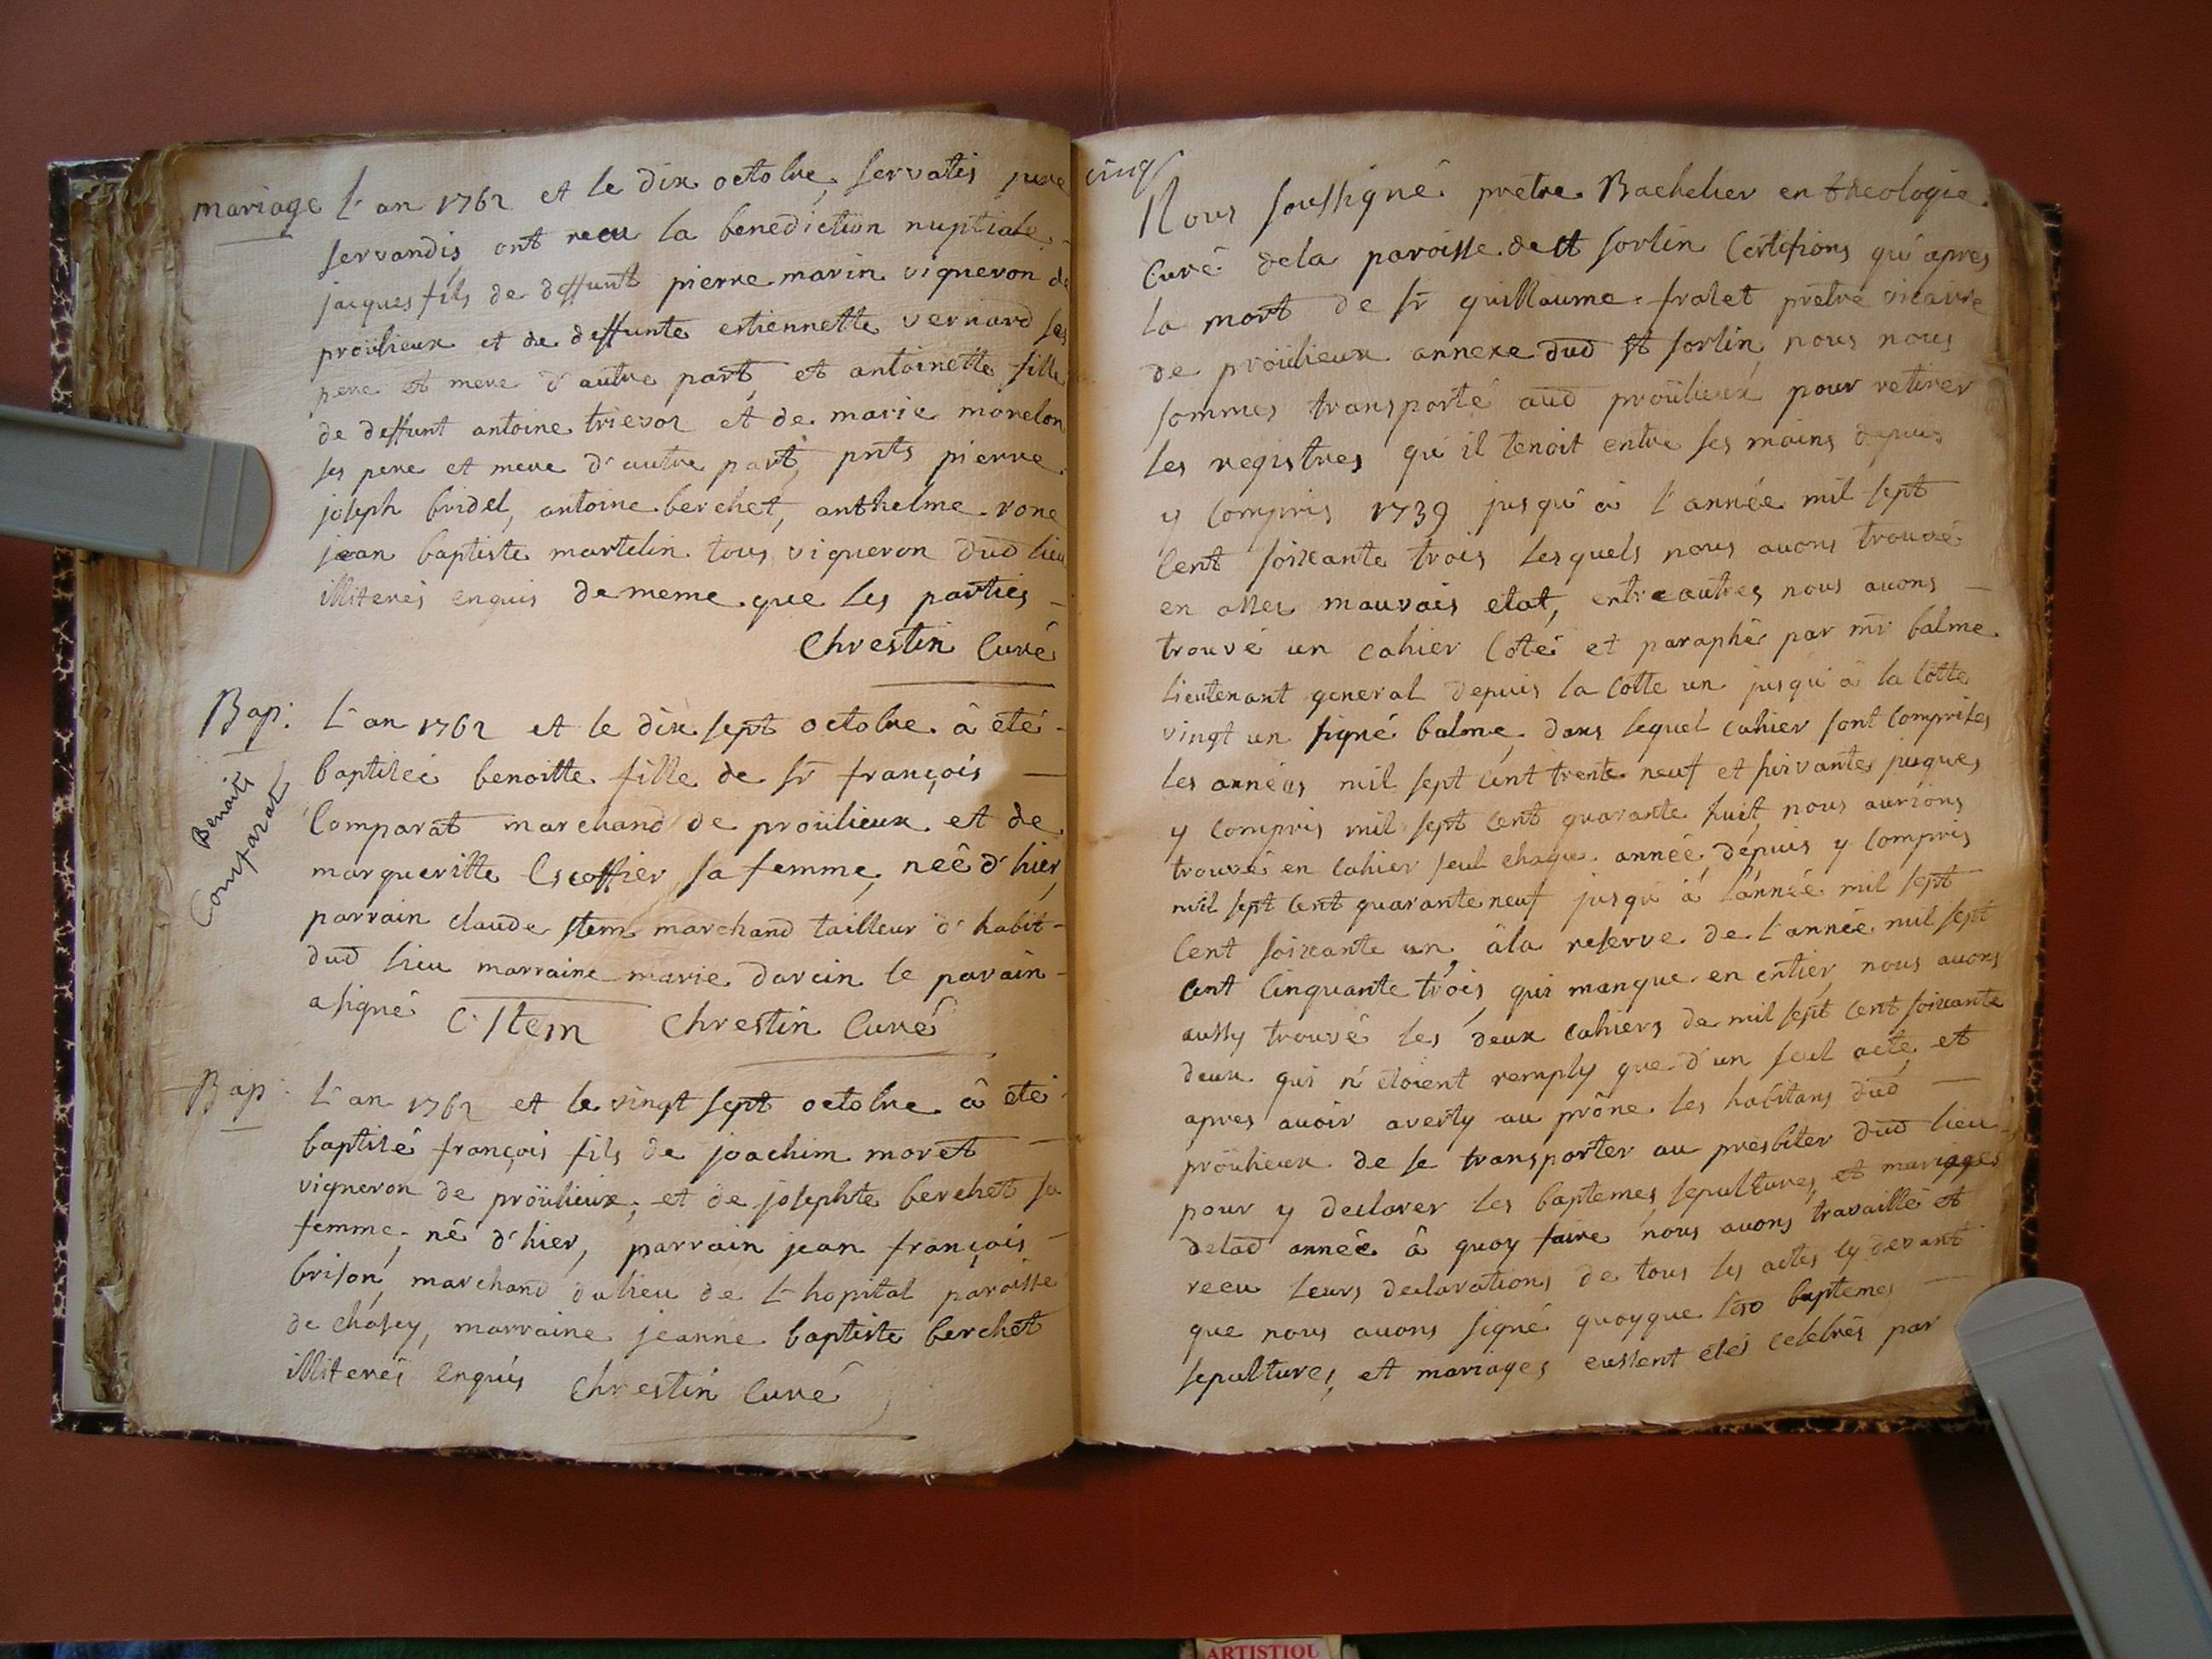 mariage L'an 1762 et le dix octobre, servatis jure
servandis, ont recu la benediction nuptiale
jacques fils de deffunt pierre marin vigneron de
proülieux et de deffunte estiennette vernard ses
pere et mere d'autre part, et antoinette fille
de deffunt antoine trievoz et de marie morelon
ses pere et mere d'autre part, pnts pierre
joseph bridel, antoine berchet, anthelme rone
jean baptiste martelin tous vigneron dud lieu
illiterés enquis de meme que les parties
Chrestin Curé
Bap: L'an 1762 et le dix sept octobre â été
Benoite
Comparat
baptiseé benoitte fille de sr françois
Comparat marchand de proülieux et de
margueritte Escoffier sa femme, neé d'hier,
parrain claude stem marchand tailleur d'habit
dud lieu marraine marie darcin le parain
a signé C. Stem Chrestin Curé
Bap: L'an 1762 et le vingt sept octobre â eté
baptisé françois fils de joachim moret
vigneron de proülieux, et de josephte berchet sa
femme, né d'hier, parrain jean françois
brison, marchand du lieu de L'hopital paroisse
de chasey, marraine jeanne baptiste berchet
illiterés enquis Chrestin Curé
cinq
Nous soussigné prètre Bachelier en theologie
Curé de la paroisse de st sorlin Certifions qu'apres
la mort de sr guillaume fralet prètre vicaire
de proülieux annexe dud st sorlin nous nous
sommes transporté aud proülieux pour retirer
les registres qu'il tenoit entre ses mains depuis
y Compris 1739 jusqu'â l'année mil sept
Cent soixante trois lesquels nous avons trouvé
en asses mauvais etat, entre autres nous avons
trouvé un cahier Coté et paraphé par mr balme
lieutenant general depuis la Cotte un jusqu'â la Cotte
vingt un signé balme, dans lequel cahier sont Comprises
les années mil sept Cent trente neuf et suivantes jusques
y Compris mil sept Cent quarante huit, nous aurions
trouvé en Cahier seul chaque année, dépuis y Compris
mil sept Cent quarante neuf jusqu'â l'année mil sept
Cent soixante un, âla reserve de l'année mil sept
Cent Cinquante trois, qui manque en entier, nous avons
aussy trouvé les deux Cahiers de mil sept Cent soixante
deux qui n'étoient remply que d'un seul acte, et
apres avoir averty au prône les habitans dud
proülieux de se transporter au presbiter dud lieu
pour y declarer les baptemes, sepultures, et mariages
delad année â quoy faire nous avons travaillé et
recu leurs declarations de tous les actes cy devant
que nous avons signé quoyque lesd baptemes
sepultures, et mariages eussent étés celebrés par
ARTISTIQU